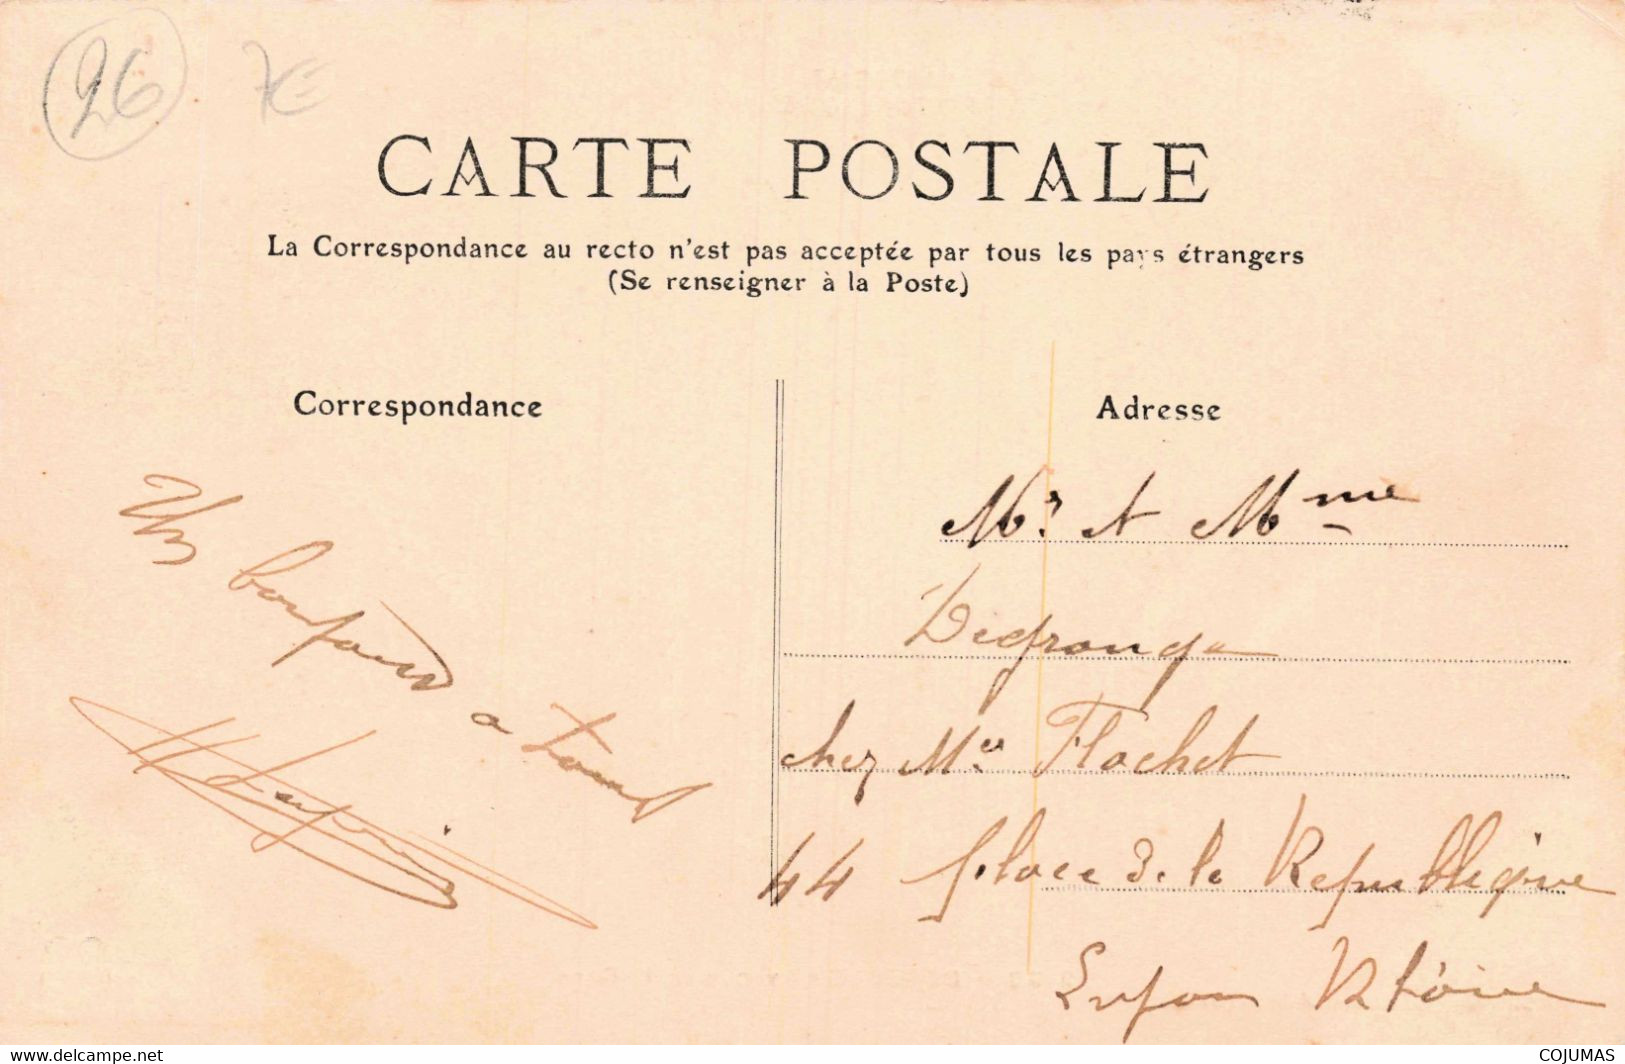 26 7€
CARTE POSTALE
La Correspondance au recto n'est pas acceptée par tous les pays étrangers
(Se renseigner à la Poste)
Correspondance
Adresse
Un bonjour a tous
Mr et Mme
Degrange
chez Mr Flachet
44 place de la République
Lyon Rhône
www.delcampe.net
COJUMAS